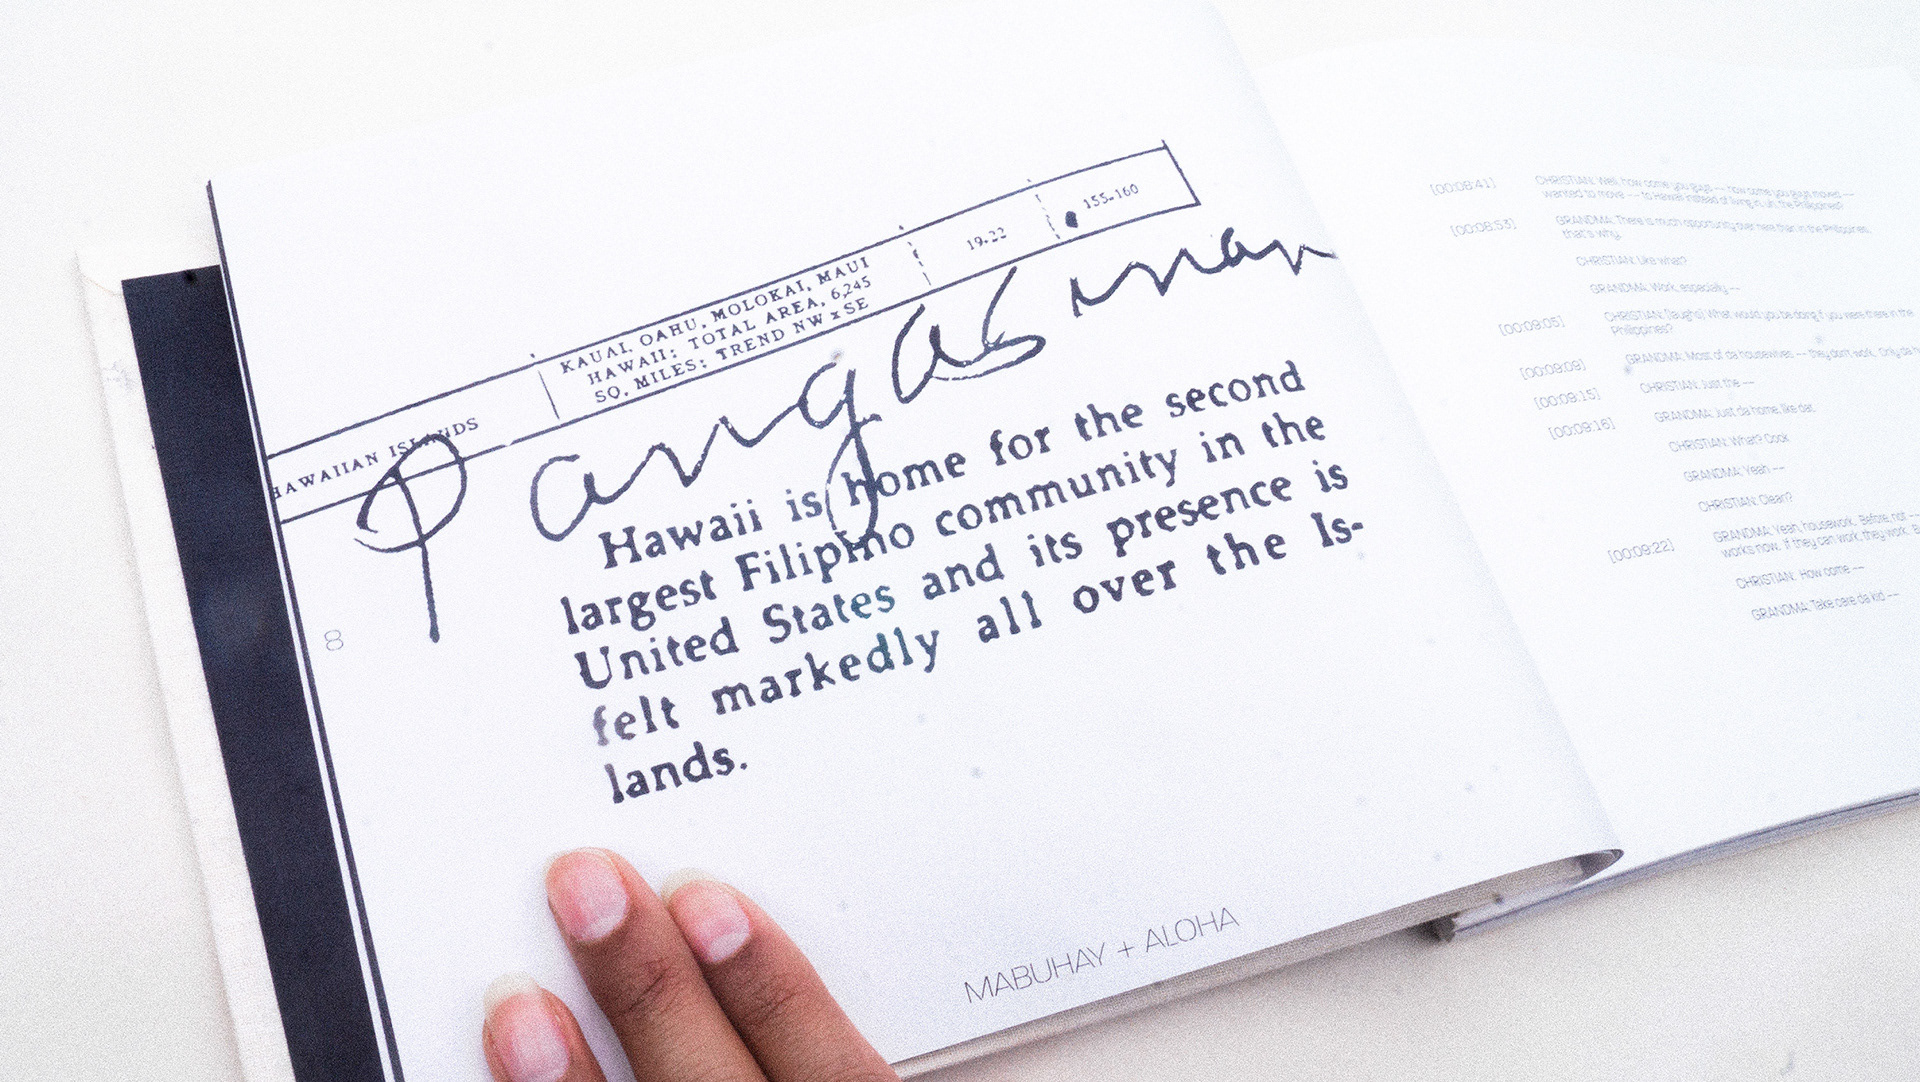 HAWAIIAN ISLANDS
KAUAI, OAHU, MOLOKAI, MAUI
HAWAII; TOTAL AREA, 6,245
SQ. MILES; TREND NW x SE
19-22
155-160
Pangasinan
Hawaii is home for the second
largest Filipino community in the
United States and its presence is
felt markedly all over the Is-
lands.
8
MABUHAY + ALOHA
[00:08:41] CHRISTIAN: Well, how come you guys -- how come you guys moved --
wanted to move -- to Hawaii instead of living in, uh, the Philippines?
[00:08:53] GRANDMA: There is much opportunity over here than in the Philippines,
that's why.
CHRISTIAN: Like what?
GRANDMA: Work, especially --
[00:09:05] CHRISTIAN: (laughs) What would you be doing if you were there in the
Philippines?
[00:09:09] GRANDMA: Most of da housewives -- they don't work. Only da
[00:09:15] CHRISTIAN: Just the --
[00:09:16] GRANDMA: Just da home, like dat.
CHRISTIAN: What? Cook
GRANDMA: Yeah --
CHRISTIAN: Clean?
[00:09:22] GRANDMA: Yeah, housework. Before, not --
works now. If they can work, they work.
CHRISTIAN: How come --
GRANDMA: Take care da kid --